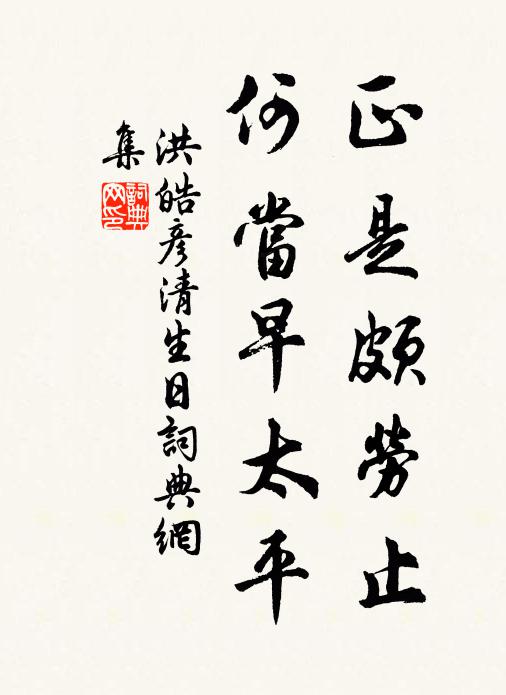 正是頗勞止
何當早太平
洪皓彥清生日詞典網
集
詞典網印